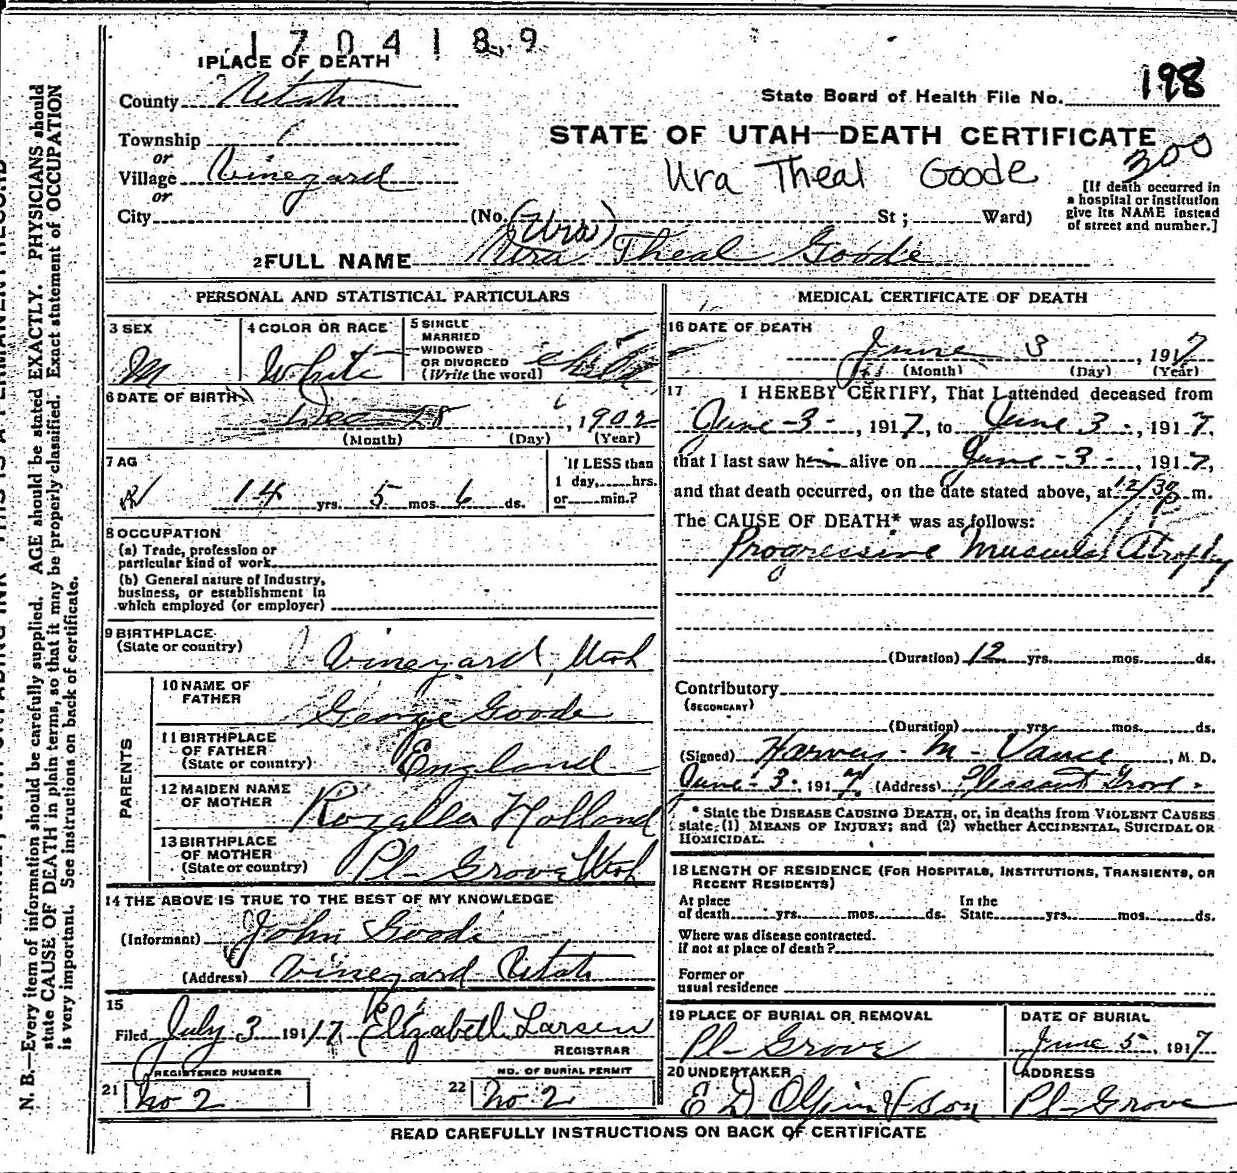 1704189
1 PLACE OF DEATH
County Utah
State Board of Health File No. 198
Township
STATE OF UTAH—DEATH CERTIFICATE
300
or
Village Vineyard
Ura Theal Goode
or
[If death occurred in
a hospital or institution
give its NAME instead
of street and number.]
City (No. St; Ward)
(Ura)
2 FULL NAME Theal Goode
PERSONAL AND STATISTICAL PARTICULARS
3 SEX
M
4 COLOR OR RACE
White
5 SINGLE
MARRIED
WIDOWED
OR DIVORCED
(Write the word)
6 DATE OF BIRTH
Dec 28, 1902
(Month) (Day) (Year)
7 AG
14 yrs. 5 mos. 6 ds.
If LESS than
1 day, hrs.
or min.?
8 OCCUPATION
(a) Trade, profession or
particular kind of work
(b) General nature of Industry,
business, or establishment in
which employed (or employer)
9 BIRTHPLACE
(State or country)
Vineyard, Utah
PARENTS
10 NAME OF
FATHER
George Goode
11 BIRTHPLACE
OF FATHER
(State or country)
England
12 MAIDEN NAME
OF MOTHER
Rozalla Holland
13 BIRTHPLACE
OF MOTHER
(State or country)
Pl- Grove Utah
14 THE ABOVE IS TRUE TO THE BEST OF MY KNOWLEDGE
(Informant) John Goode
(Address) Vineyard Utah
15
Filed July 3 1917 Elizabeth Larsen
REGISTRAR
REGISTERED NUMBER
21 No 2
NO. OF BURIAL PERMIT
22 No 2
MEDICAL CERTIFICATE OF DEATH
16 DATE OF DEATH
June 3, 1917
(Month) (Day) (Year)
17 I HEREBY CERTIFY, That I attended deceased from
June -3-, 1917, to June 3-, 1917,
that I last saw him alive on June -3-, 1917,
and that death occurred, on the date stated above, at 12/30 P m.
The CAUSE OF DEATH* was as follows:
Progressive Muscular Atrophy
(Duration) 12 yrs. mos. ds.
Contributory
(SECONDARY)
(Duration) yrs. mos. ds.
(Signed) Harvey - M - Vance, M. D.
June - 3 - 1917. (Address) Pleasant Grove -
* State the DISEASE CAUSING DEATH, or, in deaths from VIOLENT CAUSES
state (1) MEANS OF INJURY; and (2) whether ACCIDENTAL, SUICIDAL OR
HOMICIDAL.
18 LENGTH OF RESIDENCE (FOR HOSPITALS, INSTITUTIONS, TRANSIENTS, OR
RECENT RESIDENTS)
At place
of death yrs. mos. ds.
In the
State yrs. mos. ds.
Where was disease contracted.
if not at place of death?
Former or
usual residence
19 PLACE OF BURIAL OR REMOVAL
Pl- Grove
DATE OF BURIAL
June 5, 1917
20 UNDERTAKER
E D Olpin & Son
ADDRESS
Pl- Grove
READ CAREFULLY INSTRUCTIONS ON BACK OF CERTIFICATE
N. B.—Every item of information should be carefully supplied. AGE should be stated EXACTLY. PHYSICIANS should
state CAUSE OF DEATH in plain terms, so that it may be properly classified. Exact statement of OCCUPATION
is very important. See instructions on back of certificate.